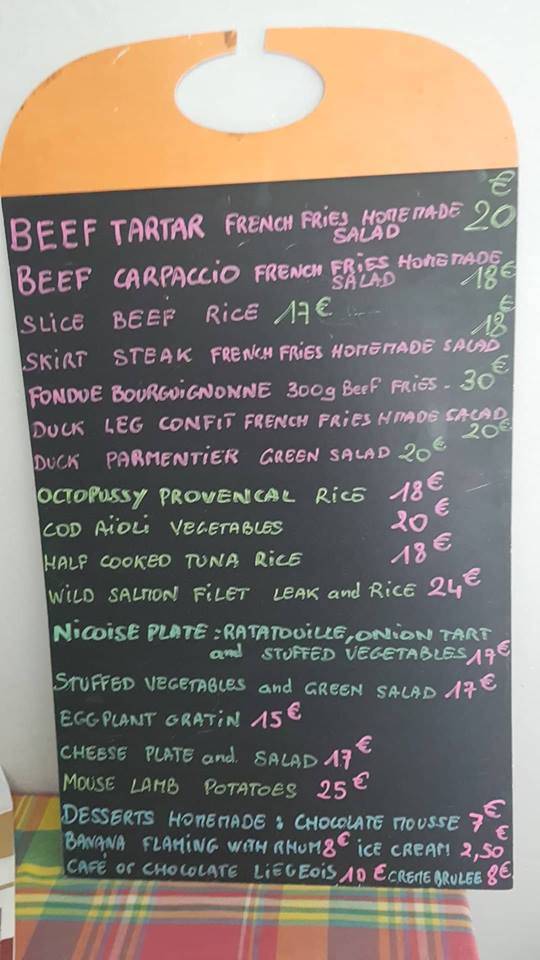 €
BEEF TARTAR FRENCH FRIES HOMEMADE 20
SALAD
BEEF CARPACCIO FRENCH FRIES HOMEMADE
SALAD 18€
SLICE BEEF RICE 17€
18€
SKIRT STEAK FRENCH FRIES HOMEMADE SALAD
FONDUE BOURGUIGNONNE 300g BEEF FRIES - 30€
DUCK LEG CONFIT FRENCH FRIES HMADE SALAD
20€
DUCK PARMENTIER GREEN SALAD 20€
OCTOPUSSY PROVENCAL RICE 18€
COD AÏOLI VEGETABLES 20€
HALF COOKED TUNA RICE 18€
WILD SALMON FILET LEAK and RICE 24€
NICOISE PLATE : RATATOUILLE, ONION TART
and STUFFED VEGETABLES 17€
STUFFED VEGETABLES and GREEN SALAD 17€
EGGPLANT GRATIN 15€
CHEESE PLATE and SALAD 17€
MOUSE LAMB POTATOES 25€
DESSERTS HOMEMADE : CHOCOLATE MOUSSE 7€
BANANA FLAMING WITH RHUM 8€ ICE CREAM 2,50€
CAFÉ or CHOCOLATE LIEGEOIS 10€ CREME BRULEE 8€